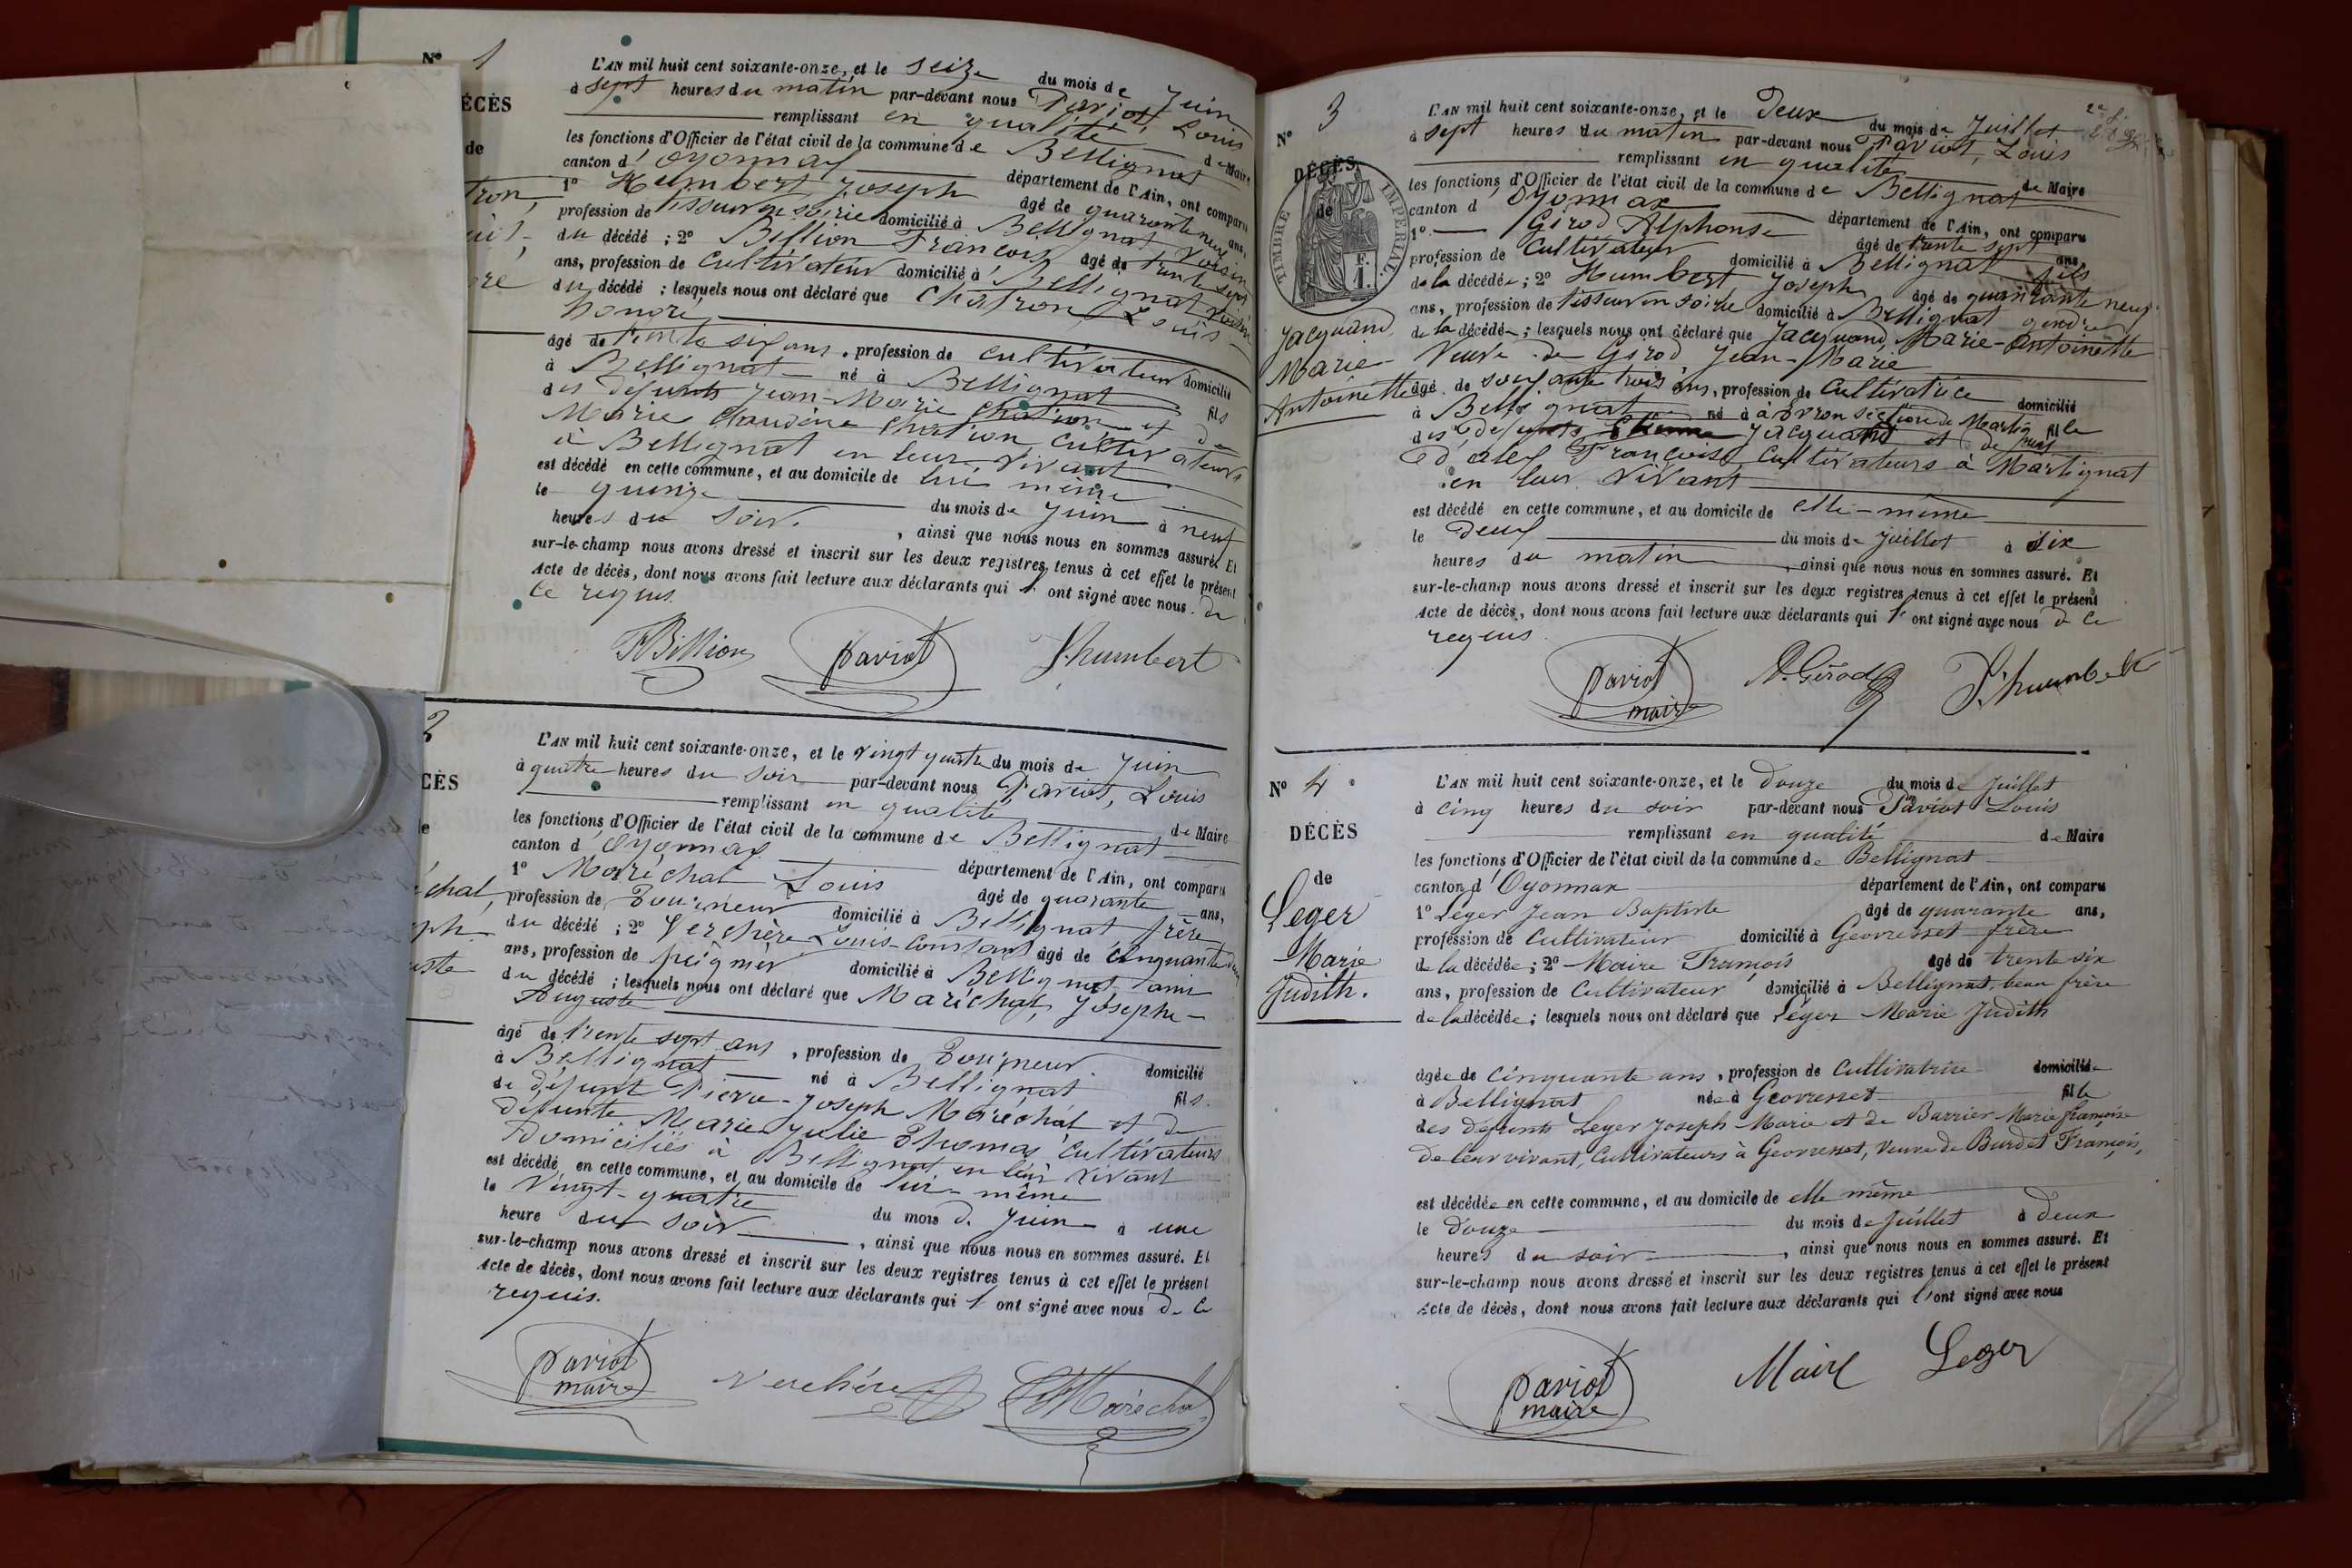 Nº 1
L'AN mil huit cent soixante-onze, et le seize du mois de Juin
à sept heures du matin par-devant nous Paviot, Louis
remplissant en qualité de Maire
les fonctions d'Officier de l'état civil de la commune de Bellignat
canton d'Oyonnax département de l'Ain, ont comparu
1º Humbert Joseph âgé de quarante neuf ans,
profession de tisseur en soirie domicilié à Bellignat voisin
du décédé ; 2º Billion François âgé de trente sept
ans, profession de cultivateur domicilié à Bellignat voisin
du décédé ; lesquels nous ont déclaré que Chatron, Louis
honoré
ÉCÈS
de
tron,
âgé de trente six ans, profession de cultivateur domicilié
à Bellignat né à Bellignat fils
des défunts Jean-Marie Chatron et de
Marie Claudine Chatron cultivateurs
à Bellignat en leur vivant
est décédé en cette commune, et au domicile de lui même
le quinze du mois de Juin à neuf
heures du soir, ainsi que nous nous en sommes assuré. Et
sur-le-champ nous avons dressé et inscrit sur les deux registres tenus à cet effet le présent
Acte de décès, dont nous avons fait lecture aux déclarants qui l'ont signé avec nous de
ce requis.
Billion Paviot J. humbert
2
L'AN mil huit cent soixante-onze, et le vingt quatre du mois de Juin
à quatre heures du soir par-devant nous Paviot, Louis
remplissant en qualité de Maire
les fonctions d'Officier de l'état civil de la commune de Bellignat
canton d'Oyonnax département de l'Ain, ont comparu
1º Maréchal Louis âgé de quarante ans,
profession de Tourneur domicilié à Bellignat frère
du décédé ; 2º Verchère Louis-Constant âgé de cinquante deux
ans, profession de peignier domicilié à Bellignat ami
du décédé ; lesquels nous ont déclaré que Maréchal, Joseph-
Auguste
CÈS
e
chal,
ph
uste
âgé de trente sept ans, profession de Tourneur domicilié
à Bellignat né à Bellignat fils
de défunt Pierre-Joseph Maréchal et de
défunte Marie Julie Thomas cultivateurs
domiciliés à Bellignat en leur vivant
est décédé en cette commune, et au domicile de lui-même
le vingt-quatre du mois de Juin à une
heure du soir, ainsi que nous nous en sommes assuré. Et
sur-le-champ nous avons dressé et inscrit sur les deux registres tenus à cet effet le présent
Acte de décès, dont nous avons fait lecture aux déclarants qui l'ont signé avec nous de ce
requis.
Paviot
maire Verchère Maréchal
Nº 3
DÉCÈS
de
TIMBRE IMPERIAL
F.
1.
Jacquand
Marie
Antoinette
L'AN mil huit cent soixante-onze, et le Deux du mois de Juillet
à sept heures du matin par-devant nous Paviot, Louis
remplissant en qualité de Maire
les fonctions d'Officier de l'état civil de la commune de Bellignat
canton d'Oyonnax département de l'Ain, ont comparu
1º Girod Alphonse âgé de trente sept ans,
profession de Cultivateur domicilié à Bellignat fils
de la décédée ; 2º Humbert Joseph âgé de quarante neuf
ans, profession de tisseur en soirie domicilié à Bellignat gendre
de la décédée ; lesquels nous ont déclaré que Jacquand, Marie-Antoinette
Veuve de Girod Jean-Marie
âgé de soixante trois ans, profession de Cultivatrice domicilié
à Bellignat né à à Evron section de Martignat fille
des défunts Jacquand et de
Françoise Cultivateurs à Martignat
en leur vivant
est décédé en cette commune, et au domicile de elle-même
le Deux du mois de Juillet à six
heures du matin, ainsi que nous nous en sommes assuré. Et
sur-le-champ nous avons dressé et inscrit sur les deux registres tenus à cet effet le présent
Acte de décès, dont nous avons fait lecture aux déclarants qui l'ont signé avec nous de ce
requis.
Paviot
maire A. Girod J. humbert
Nº 4
DÉCÈS
de
Leger
Marie
Judith.
L'AN mil huit cent soixante-onze, et le Douze du mois de Juillet
à cinq heures du soir par-devant nous Paviot Louis
remplissant en qualité de Maire
les fonctions d'Officier de l'état civil de la commune de Bellignat
canton d'Oyonnax département de l'Ain, ont comparu
1º Léger Jean Baptiste âgé de quarante ans,
profession de Cultivateur domicilié à Geovresset frère
de la décédée ; 2º Maire François âgé de trente six
ans, profession de Cultivateur domicilié à Bellignat, beau frère
de la décédée ; lesquels nous ont déclaré que Léger Marie Judith
agée de cinquante ans, profession de Cultivatrice domiciliée
à Bellignat née à Geovresset fille
des défunts Leger Joseph Marie et de Barrier Marie françoise
de leur vivant, Cultivateurs à Geovresset, Veuve de Burdet François,
est décédée en cette commune, et au domicile de elle même
le Douze du mois de Juillet à Deux
heures du soir, ainsi que nous nous en sommes assuré. Et
sur-le-champ nous avons dressé et inscrit sur les deux registres tenus à cet effet le présent
Acte de décès, dont nous avons fait lecture aux déclarants qui l'ont signé avec nous
Paviot
maire Maire Leger